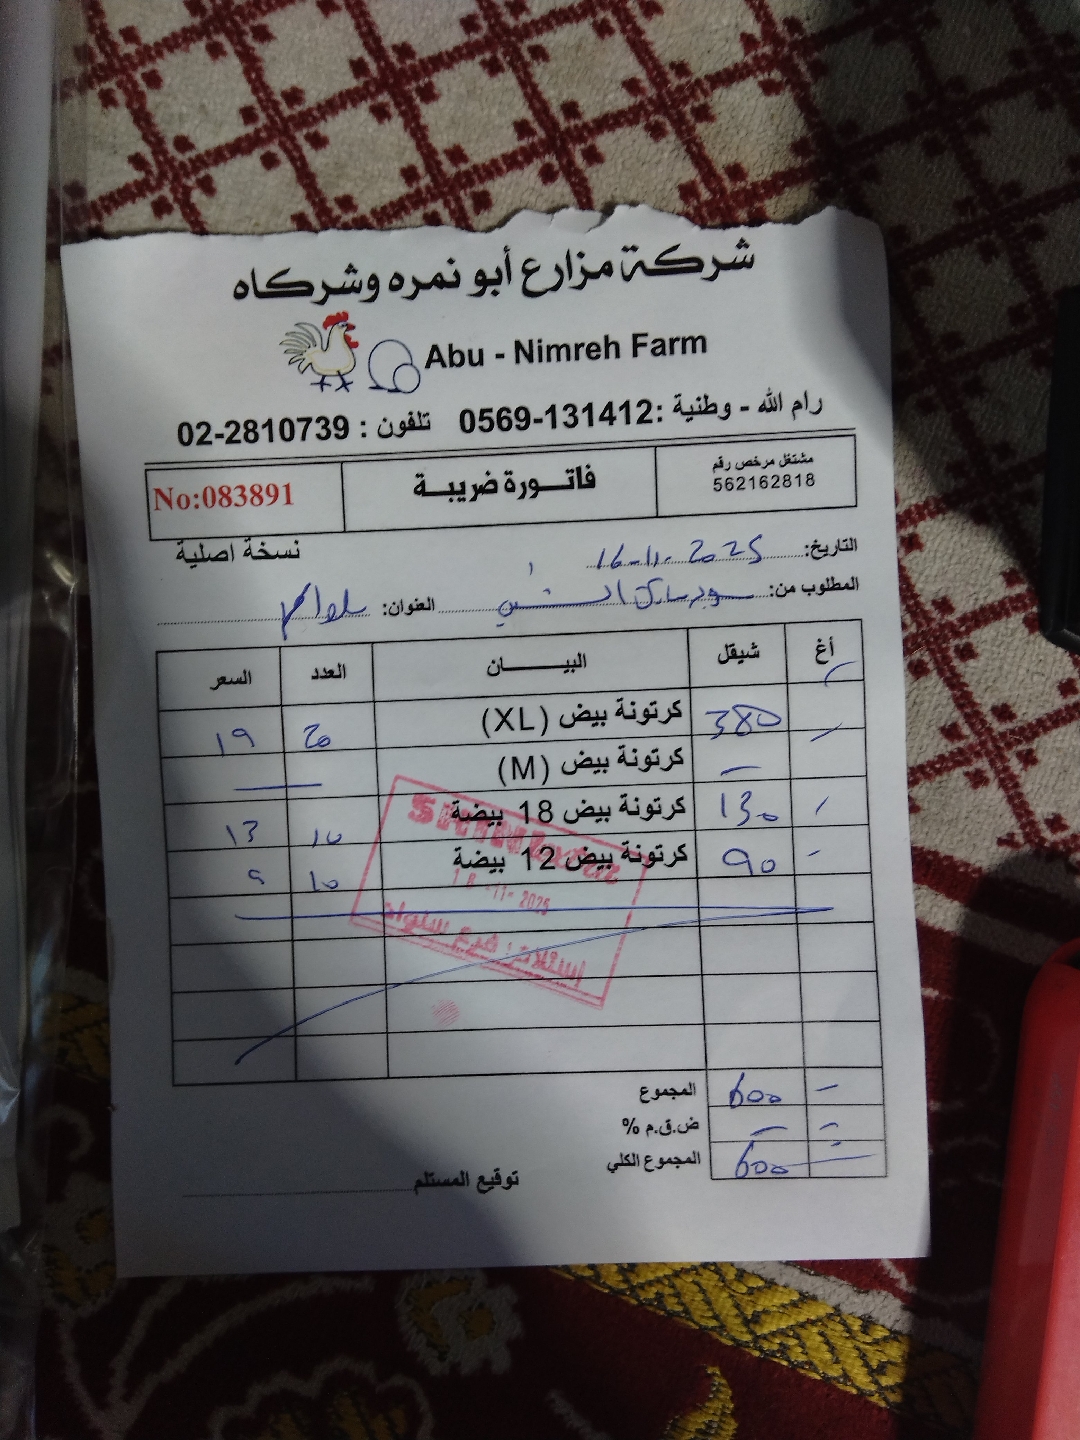 شركة مزارع أبو نمره وشركاه
Abu - Nimreh Farm
رام الله - وطنية :0569-131412 تلفون : 02-2810739
مشتغل مرخص رقم
562162818
فاتـــورة ضريبــة
No:083891
نسخة اصلية
التاريخ: 16-11-2025
المطلوب من: سوبرماركت الشني العنوان:
أغ شيقل البيـــــــان العدد السعر
- 380 كرتونة بيض (XL) 20 19
- كرتونة بيض (M) -
- 130 كرتونة بيض 18 بيضة 10 13
- 90 كرتونة بيض 12 بيضة 10 9
-11- 2025
إستلام: فرع سلواد
المجموع 600 -
ض.ق.م % - -
المجموع الكلي 600 -
توقيع المستلم